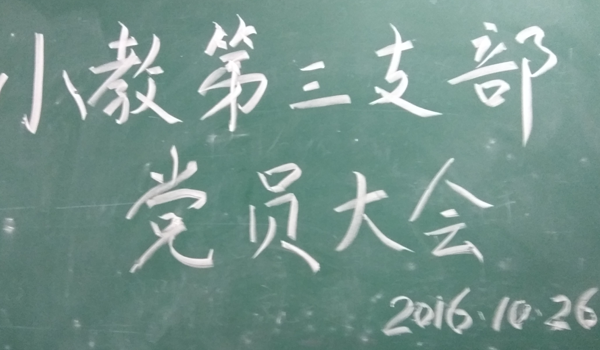 小教第三支部
党员大会
2016.10.26